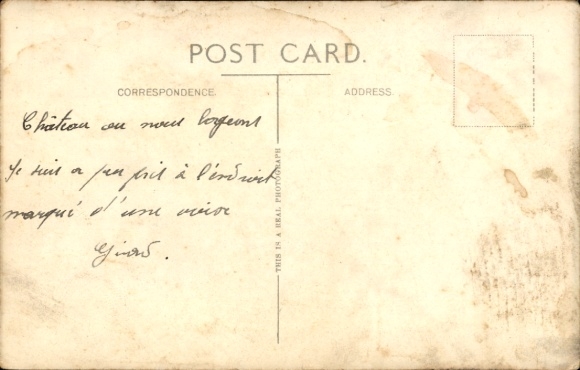 POST CARD.
CORRESPONDENCE.
ADDRESS
Château ou nous logeons
Je suis a peu près à l'endroit
marqué d'une croix
THIS IS A REAL PHOTOGRAPH